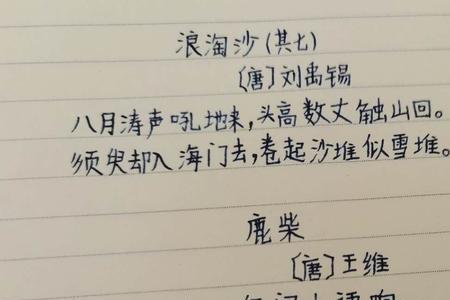 浪淘沙(其七)
〔唐〕刘禹锡
八月涛声吼地来,头高数丈触山回。
须臾却入海门去,卷起沙堆似雪堆。
鹿柴
〔唐〕王维